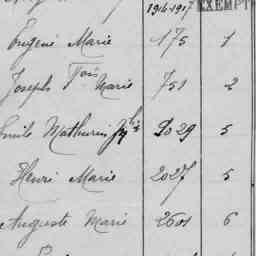 1916-1917 EXEMPT
Eugène Marie 175 1
Joseph Fois Marie 751 2
Emile Mathurin Jph 2029 5
Henri Marie 2027 5
Auguste Marie 2601 6